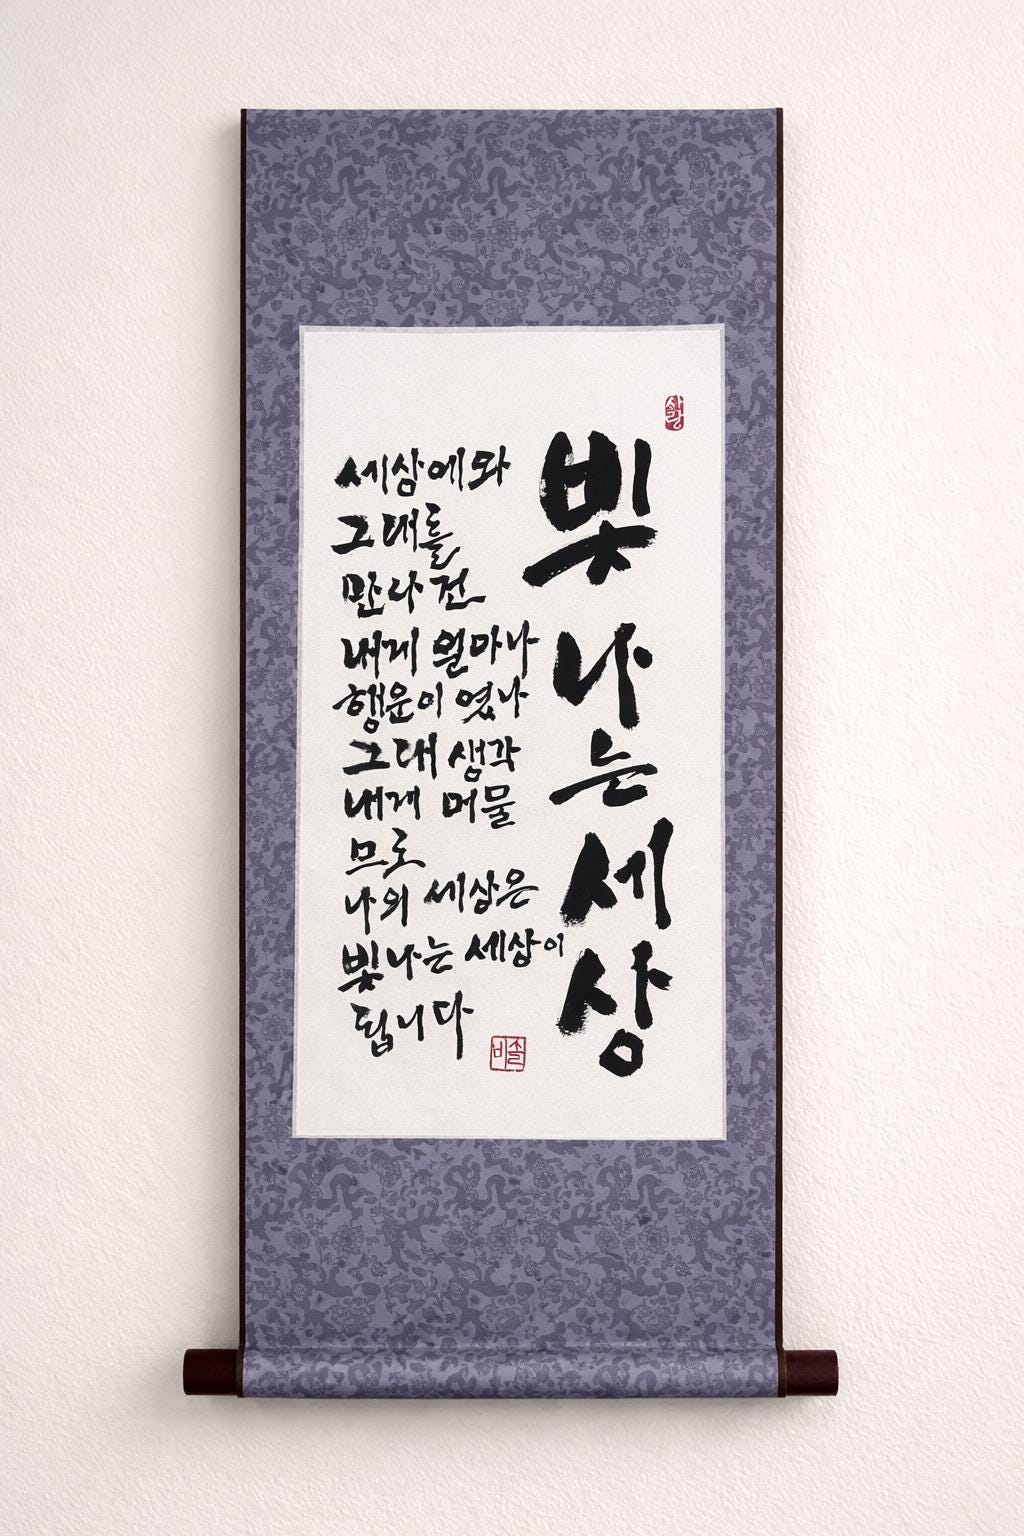 빛나는세상
세상에와
그대를
만나건
내게 얼마나
행운이 였나
그대 생각
내게 머물
므로
나의 세상은
빛나는 세상이
됩니다
솔비